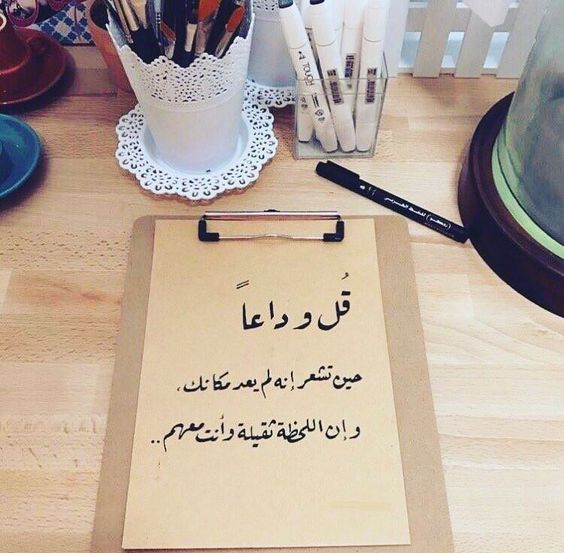 قُل وداعاً
حين تشعر إنه لم يعد مكانك،
و إن اللحظة ثقيلة وأنت معهم ..